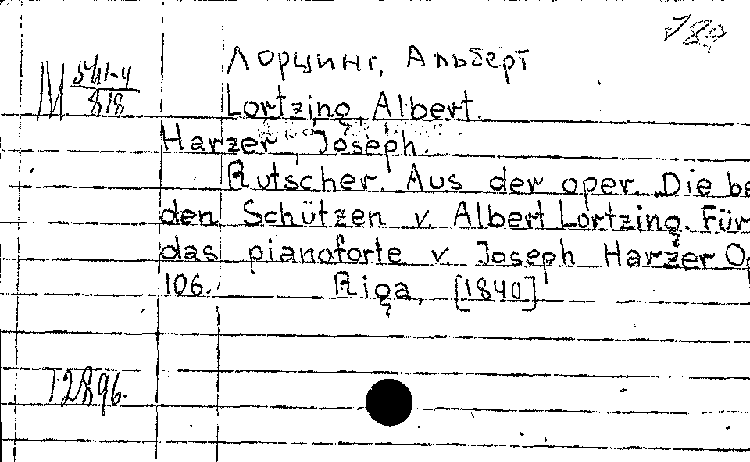 780
Лорцинг, Альберт
M 541-4
818
Lortzing, Albert.
Harzer, Joseph.
Rutscher. Aus der oper „Die be
den Schützen v. Albert Lortzing. Für
das pianoforte v. Joseph Harzer Op
106. Riga, [1840]
12896.